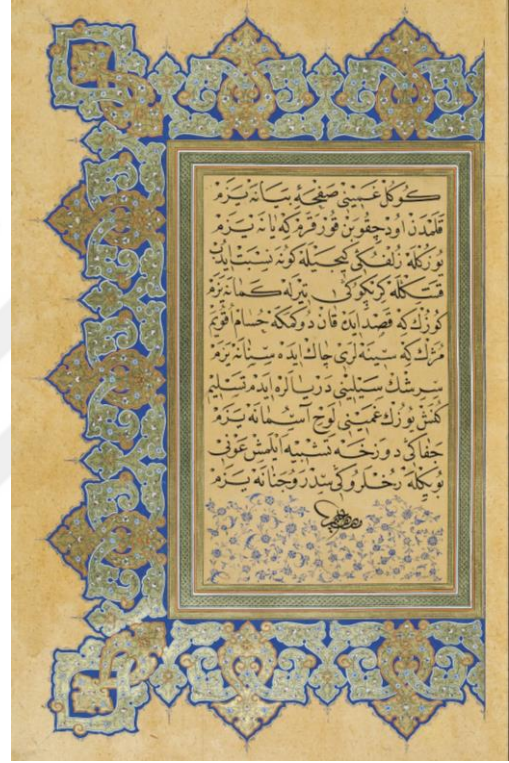 كوكل غمينى صفحهٔ بيانه يزم
قلمدن اود چقوبن قورقرم كه يانه يزم
يوزكله زلفكى كيجيله كونه نسبت ايدن
قشكله كرپكوكى تيرله كمانه يزم
كوزك كه قصد ايدن قان دوكمكه حسام اوقويم
مژك كه سينه لرى چاك ايده سنانه يزم
سرشك سيلينى دريالره ايدم تسليم
كنش يوزك غمينى لوح آسمانه يزم
جفاكى دوزخه تشبيه ايلمش عونى
بويكله رخلروكى سدر وجنانه يزم